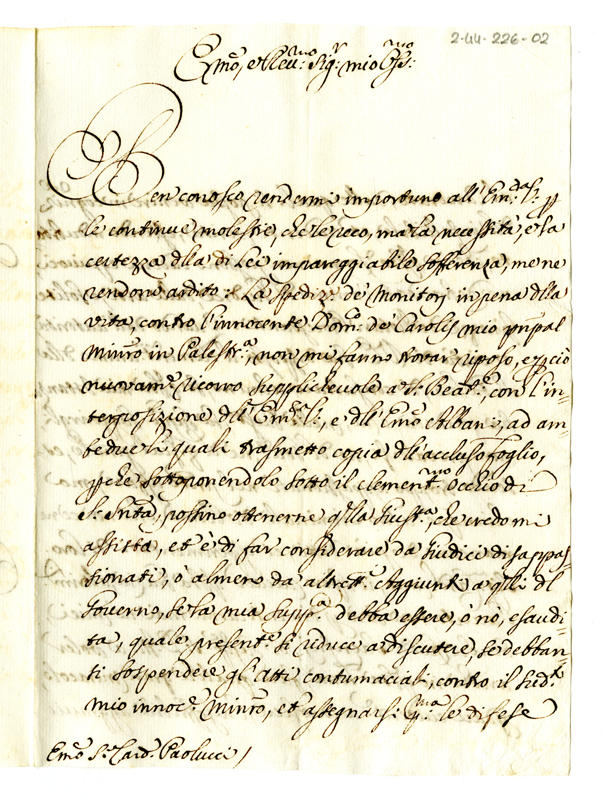 2-44-226-02
Emo, e Reu:mo Sig:r mio Oss:mo
Ben conosco rendermi importuno all'Em:da S: p
le continue molestie, che le reco, ma la necessità, e la
certezza dlla di Lei impareggiabile sofferenza, me ne
rendono ardito: La spediz:e de Monitorj in pena dlla
vita, contro l'innocente Dom:o de Carolis mio pnpal
Minro in Palestr:a, non mi fanno trovar riposo, e p ciò
nuovam:e ricorro supplicheuole a S: Beat:e, con l'in=
terposizione dll'Em: S:, e dll'Emo Albani, ad am=
bedue li quali trasmetto copia dll'accluso foglio,
pche sottoponendolo sotto il clement:mo occhio di
S: Sntà, possino ottenerne qlla Giust:a, che credo mi
assista, et è di far considerare da Giudici disappas=
sionati, ò almeno da altrett:i Aggiunti a qlli dl
Governo, se la mia supp:a debba essere, ò nò, esaudi=
ta, quale present:e si riduce a discutere, se debban=
si sospendere gl'atti contumaciali, contro il sud:o
mio innoc:e Minro, et assegnarsi p:ma le difese
Emo S: Card: Paolucci